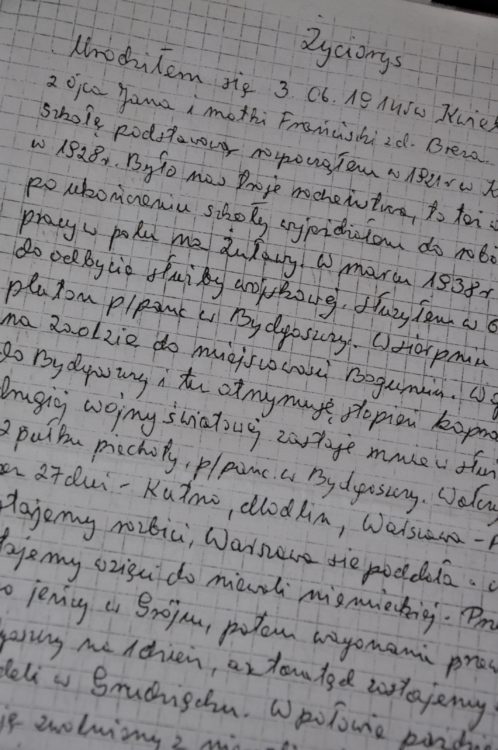 Życiorys
Urodziłem się 3.06.1914r w
z ojca Jana i matki Franciszki z d. Breza.
szkołę podstawową rozpocząłem w 1921r w K
w 1928r. Było nas troje rodzeństwa, to też
po ukończeniu szkoły wyjeżdżałem do robo
pracy w polu na Żuławy. W marcu 1938r
do odbycia służby wojskowej. Służyłem w 6
pluton p/panc w Bydgoszczy. W sierpniu
na Zaolzie do miejscowości Bogumin. W
do Bydgoszczy i tu otrzymuję stopień kapra
drugiej wojny światowej zastaje mnie w służ
2 pułku piechoty, p/panc. w Bydgoszczy. Walczy
27 dni - Kutno, Modlin, Warszawa -
stajemy rozbici, Warszawa się poddała -
tajemy wzięci do niewoli niemieckiej. Prze
jeńcy w Grójcu, potem wagonami prze
na 1 dzień, a stamtąd zostajemy
w Grudziądzu. W połowie paździe
zwolniony z